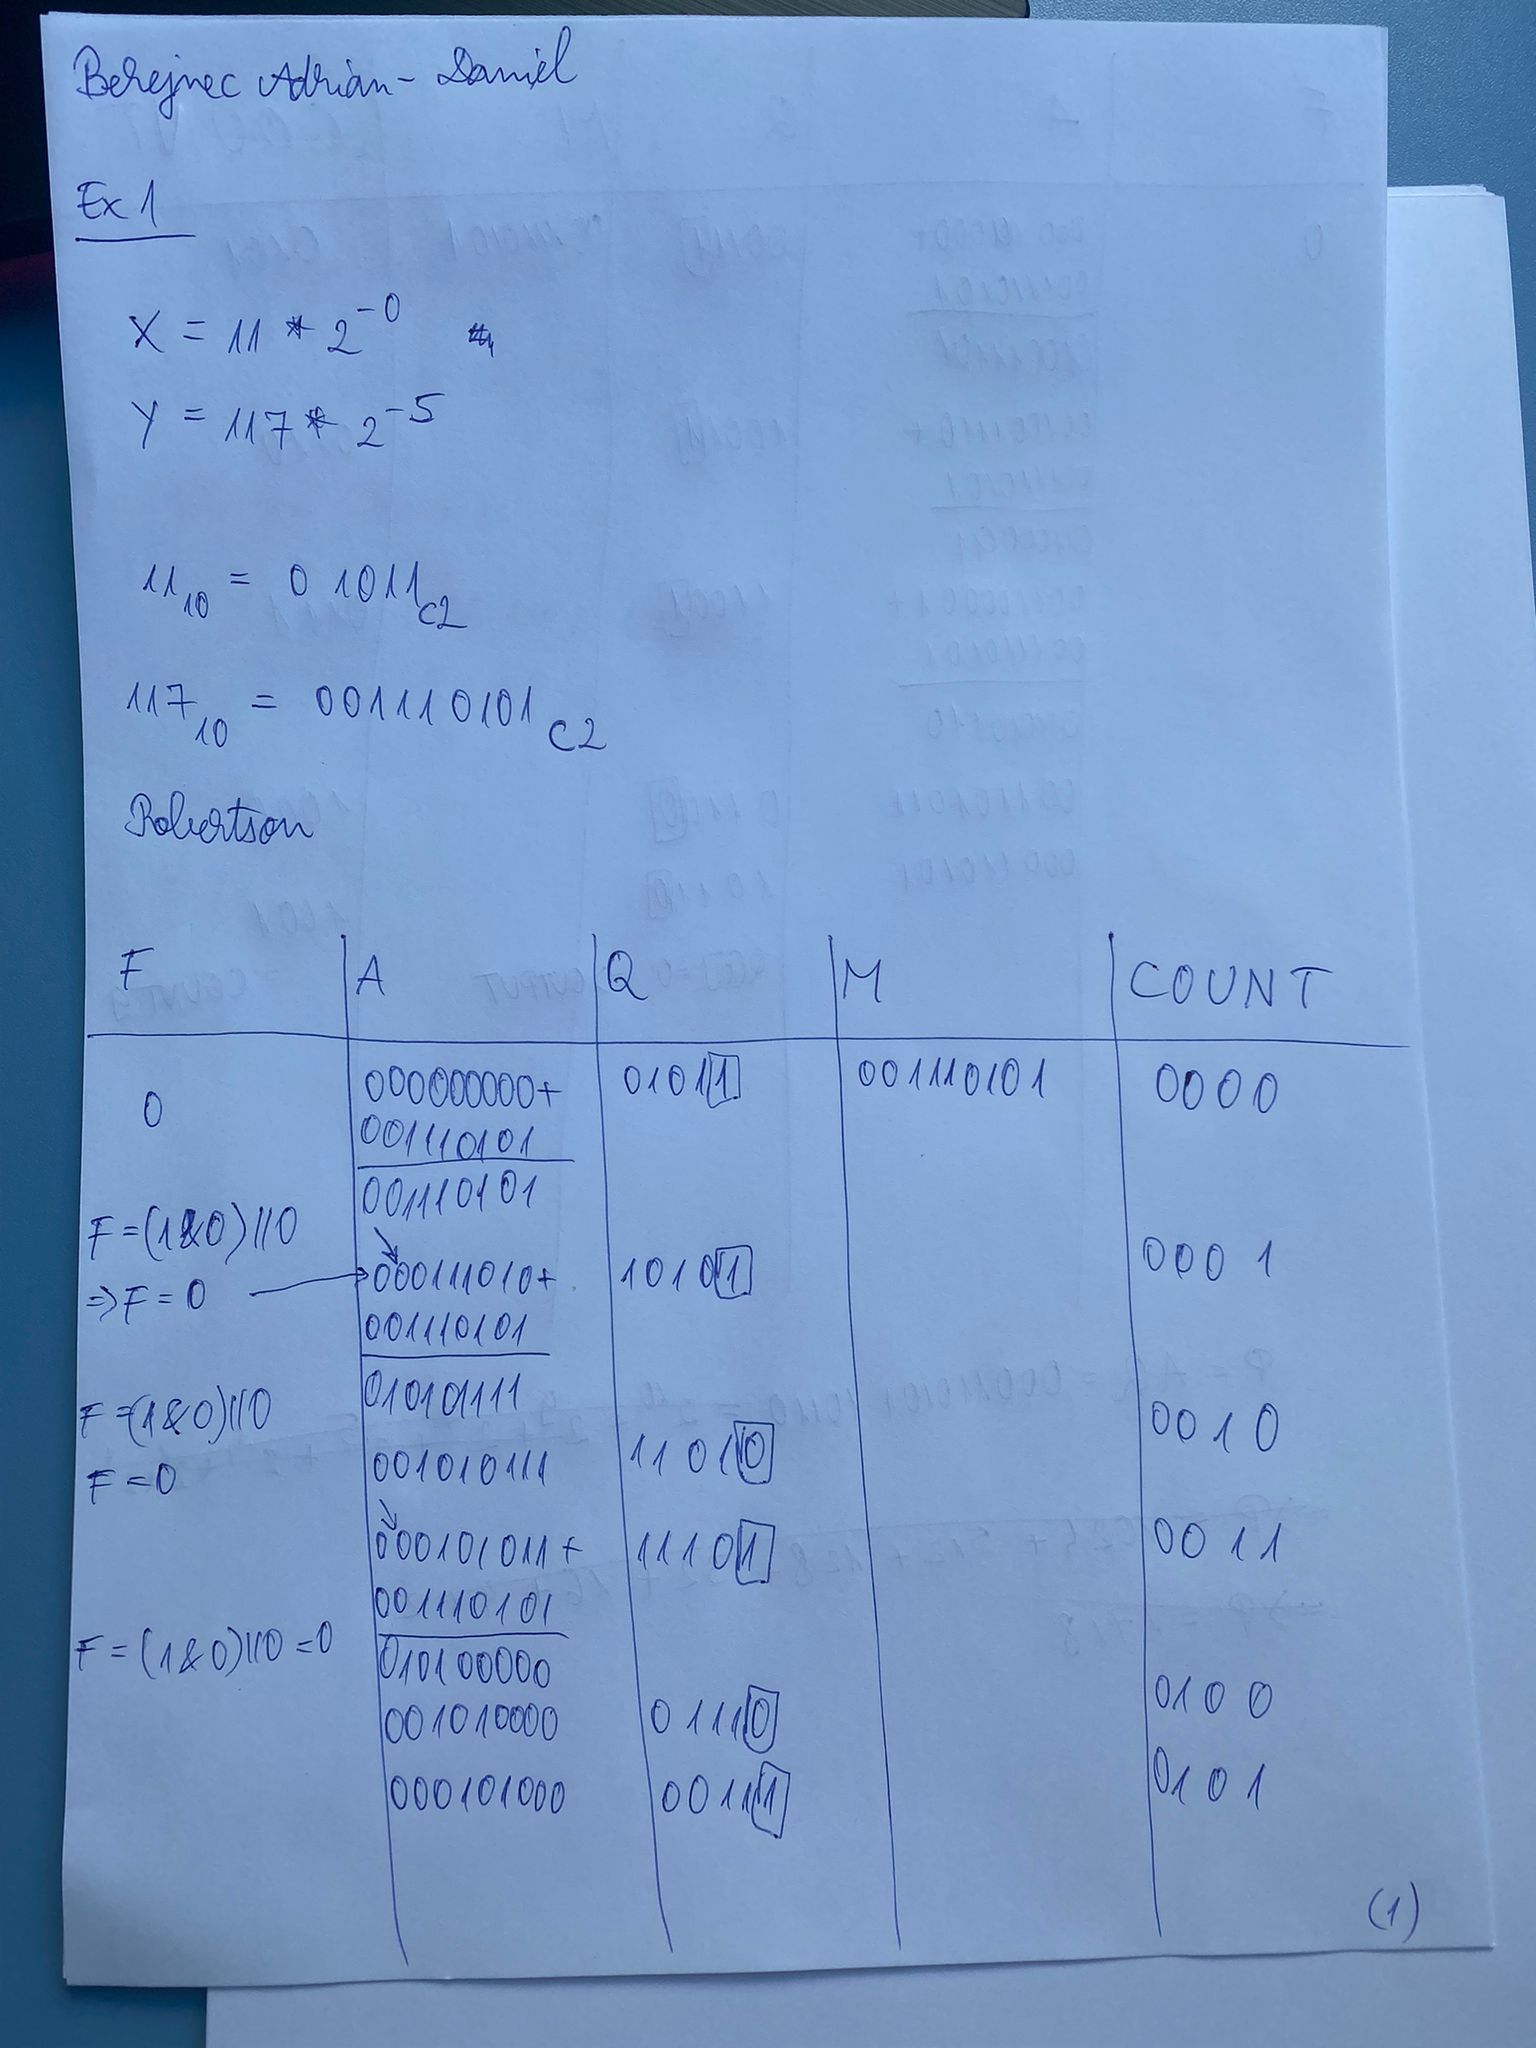 Berejnec Adrian-Daniel
Ex 1
X = 11 * 2^-0
Y = 117 * 2^-5
11_10 = 0 1011_C2
117_10 = 001110101_C2
Robertson
F A Q M COUNT
0 000000000+ 01011 001110101 0000
001110101
001110101
F = (1&0)||0
=> F = 0 000111010+ 10101 0001
001110101
F = (1&0)||0 010101111
F = 0 001010111 11010 0010
000101011+ 11101 0011
001110101
F = (1&0)||0 = 0 010100000
001010000 01110 0100
000101000 00111 0101
(1)